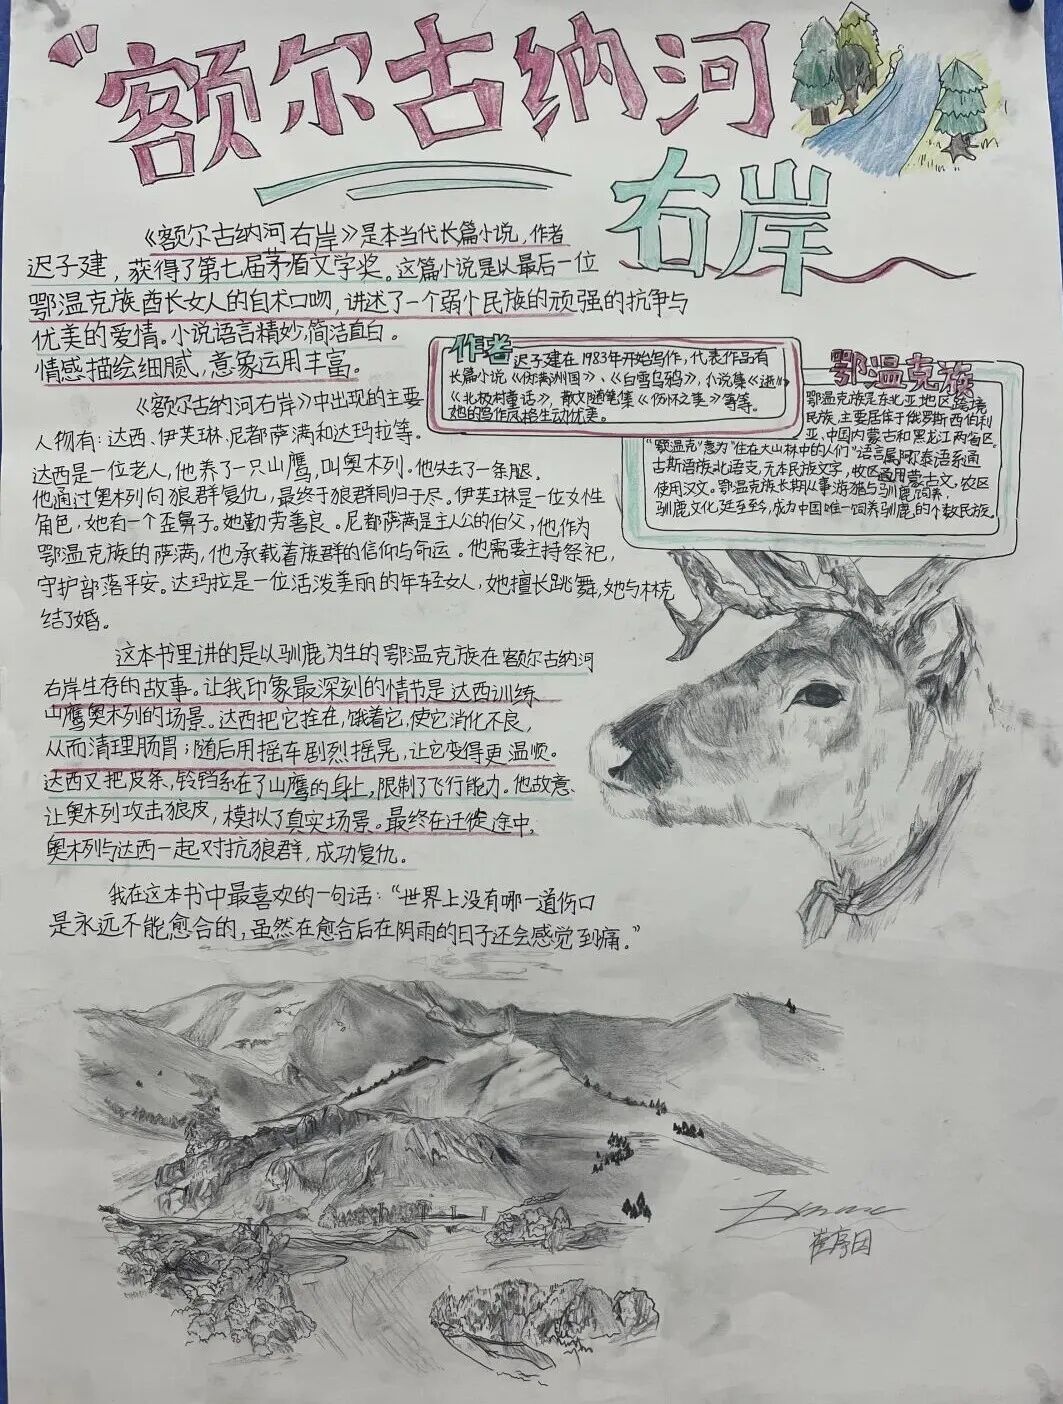 “额尔古纳河
右岸
《额尔古纳河右岸》是本当代长篇小说，作者
迟子建，获得了第七届茅盾文字奖。这篇小说是以最后一位
鄂温克族酋长女人的自术口吻，讲述了一个弱小民族的顽强的抗争与
优美的爱情。小说语言精妙，简洁直白。
情感描绘细腻，意象运用丰富。
作者
迟子建在1983年开始写作，代表作品有
长篇小说《伪满洲国》、《白雪乌鸦》，小说集《逝川》
《北极村童话》，散文随笔集《伤怀之美》等等。
她的写作风格生动优美。
鄂温克族
鄂温克族是东北亚地区跨境
民族，主要居住于俄罗斯西伯利
亚、中国内蒙古和黑龙江两省区。
“鄂温克”意为“住在大山林中的人们”语言属阿尔泰语系通
古斯语族北语支，无本民族文字，牧区通用蒙古文，农区
使用汉文。鄂温克族长期从事游猎与驯鹿饲养，
驯鹿文化延至至今，成为中国唯一饲养驯鹿的少数民族。
《额尔古纳河右岸》中出现的主要
人物有：达西、伊芙琳、尼都萨满和达玛拉等。
达西是一位老人，他养了一只山鹰，叫奥木列。他失去了一条腿。
他通过奥木列向狼群复仇，最终于狼群同归于尽。伊芙琳是一位女性
角色，她有一个歪鼻子。她勤劳善良。尼都萨满是主人公的伯父，他作为
鄂温克族的萨满，他承载着族群的信仰与命运。他需要主持祭祀，
守护部落平安。达玛拉是一位活泼美丽的年轻女人，她擅长跳舞，她与林克
结了婚。
这本书里讲的是以驯鹿为生的鄂温克族在额尔古纳河
右岸生存的故事。让我印象最深刻的情节是达西训练
山鹰奥木列的场景。达西把它拴在，饿着它，使它消化不良，
从而清理肠胃；随后用摇车剧烈摇晃，让它变得更温顺。
达西又把皮条，铃铛系在了山鹰的身上，限制了飞行能力。他故意
让奥木列攻击狼皮，模拟了真实场景。最终在迁徙途中，
奥木列与达西一起对抗狼群，成功复仇。
我在这本书中最喜欢的一句话：“世界上没有哪一道伤口
是永远不能愈合的，虽然在愈合后在阴雨的日子还会感觉到痛。”